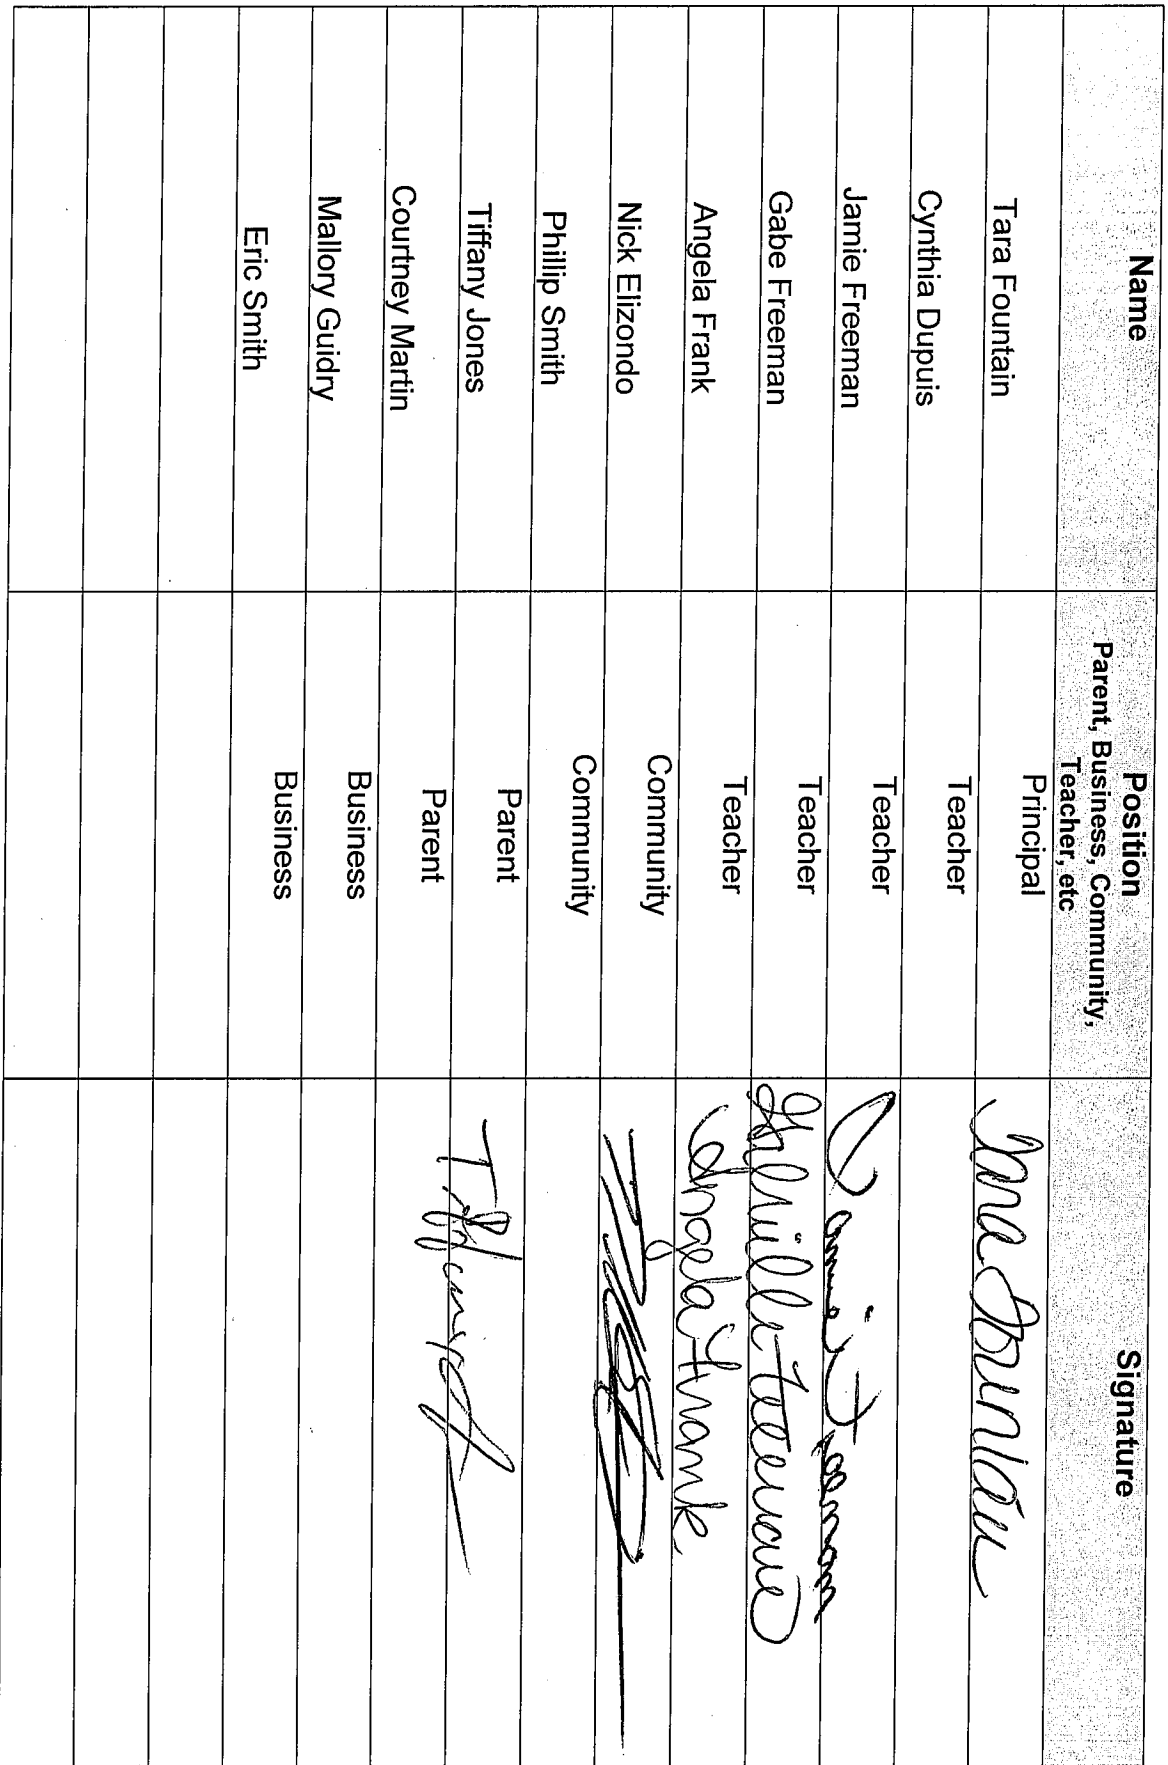 Name Position Signature
Parent, Business, Community,
Teacher, etc
Tara Fountain Principal Tara Fountain
Cynthia Dupuis Teacher
Jamie Freeman Teacher Jamie Freeman
Gabe Freeman Teacher Freeman
Angela Frank Teacher Angela Frank
Nick Elizondo Community
Phillip Smith Community
Tiffany Jones Parent Tiffany
Courtney Martin Parent
Mallory Guidry Business
Eric Smith Business